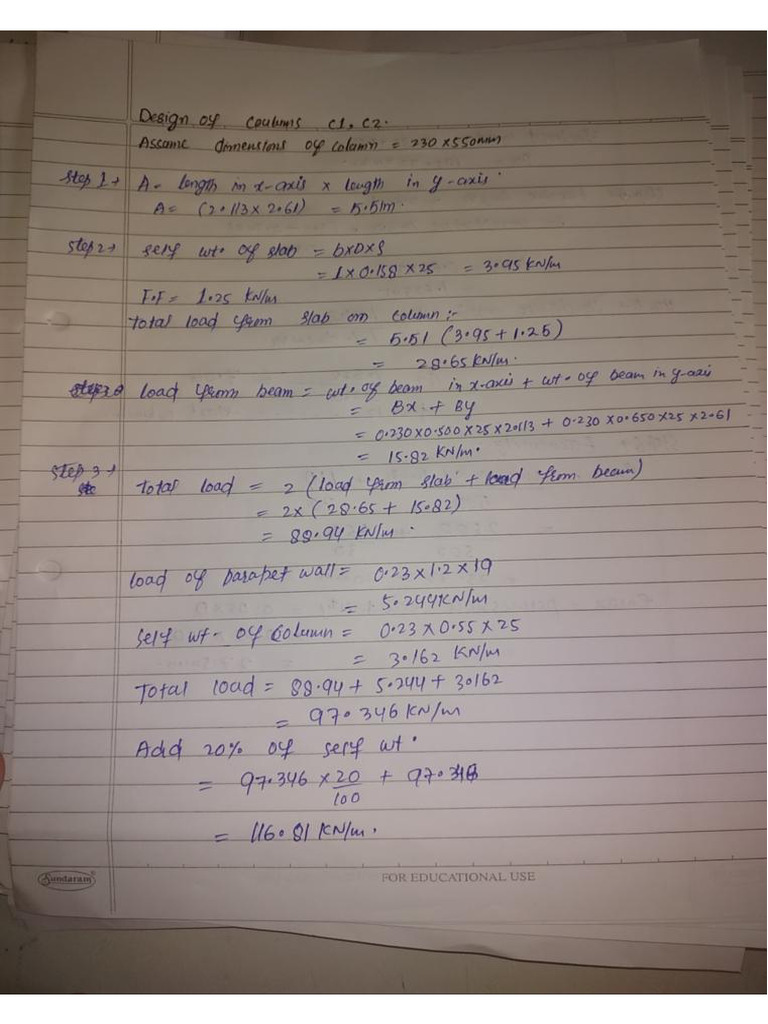 Design of Coulums C1, C2.
Assume dimensions of column = 230 x 550mm
Step 1→ A = length in x-axis x length in y-axis.
A = (2.113 x 2.61) = 5.51m.
Step 2→ self wt. of slab = b x D x S
= 1 x 0.158 x 25 = 3.95 KN/m
F.F = 1.25 KN/m
Total load from slab on column :-
= 5.51 (3.95 + 1.25)
= 28.65 KN/m.
Load from beam = wt. of beam in x-axis + wt. of beam in y-axis
= Bx + By
= 0.230 x 0.500 x 25 x 2.113 + 0.230 x 0.650 x 25 x 2.61
= 15.82 KN/m.
Step 3→ Total load = 2 (load from slab + load from beam)
= 2 x (28.65 + 15.82)
= 88.94 KN/m.
load of parapet wall = 0.23 x 1.2 x 19
= 5.244 KN/m
self wt. of Column = 0.23 x 0.55 x 25
= 3.162 KN/m
Total load = 88.94 + 5.244 + 3.162
= 97.346 KN/m
Add 20% of self wt.
= 97.346 x 20/100 + 97.346
= 116.81 KN/m.
Sundaram FOR EDUCATIONAL USE